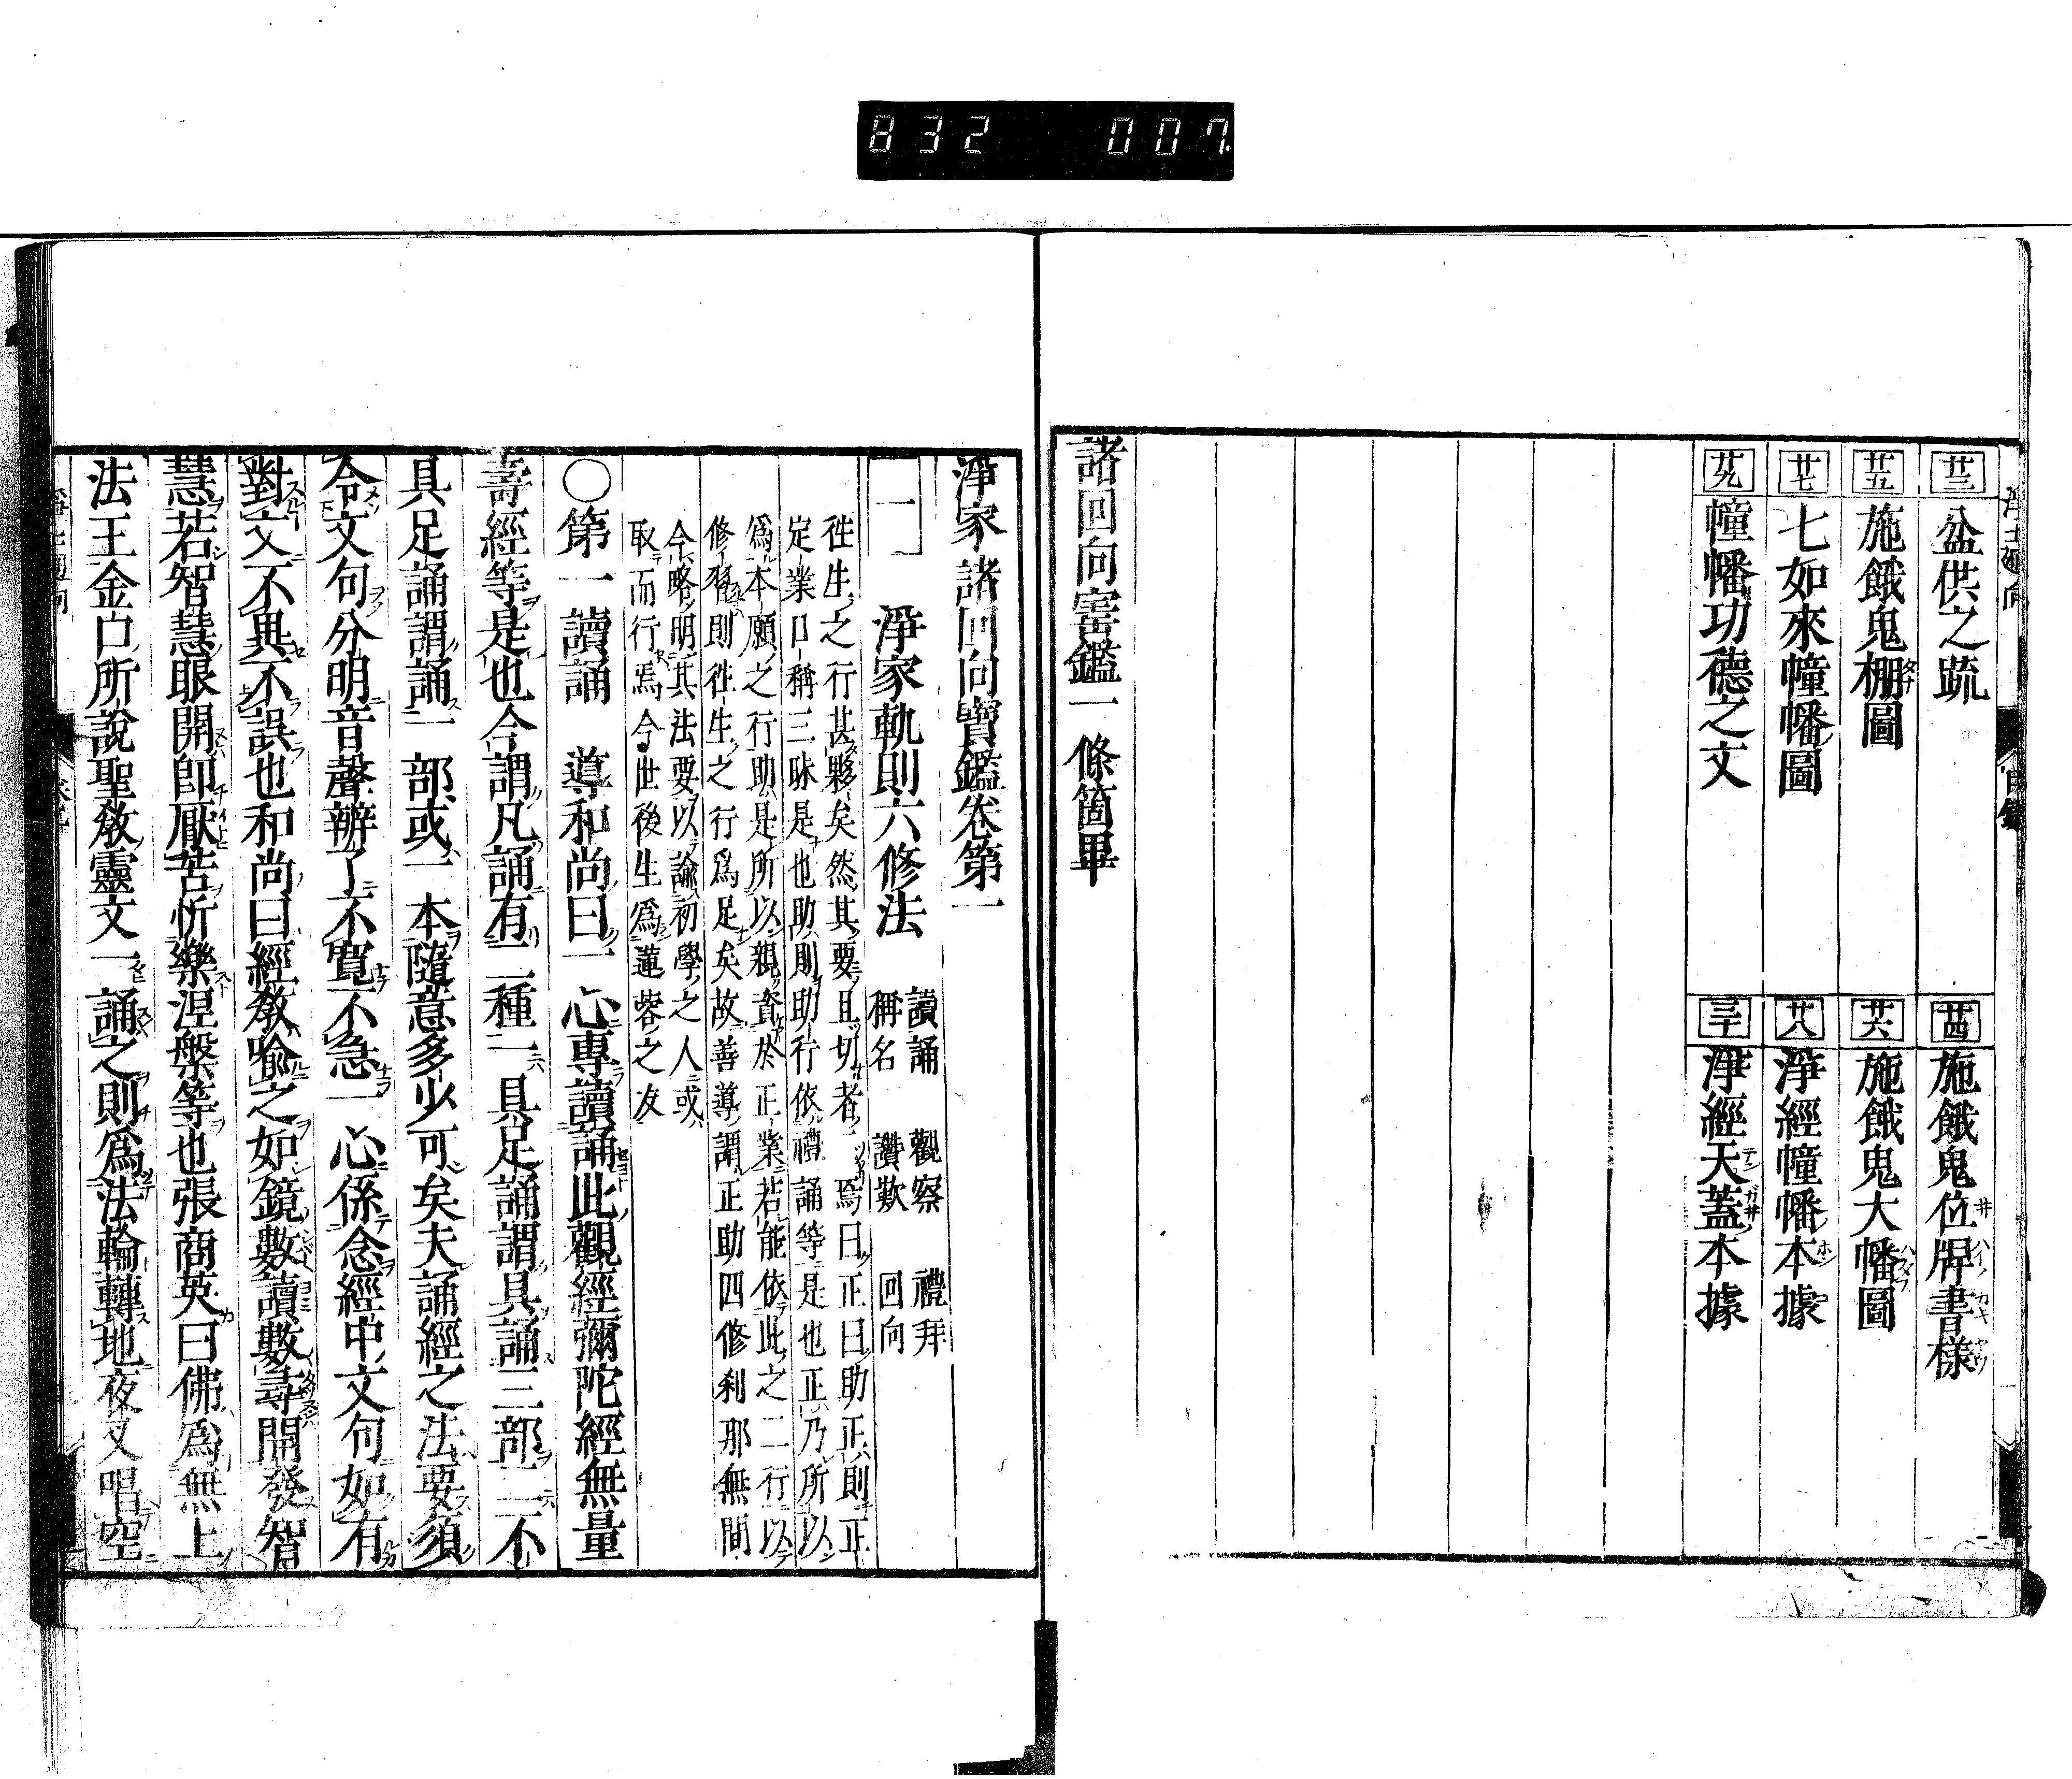 832 007.
廿三 盆供之疏
廿四 施餓鬼位牌書樣
廿五 施餓鬼棚圖
廿六 施餓鬼大幡圖
廿七 七如來幢幡圖
廿八 淨經幢幡本據
廿九 幢幡功德之文
三十 淨經天蓋本據
諸回向宝鑑一 條箇畢
淨家諸回向寶鑑卷第一
一 淨家軌則六修法 讀誦 觀察 禮拜
稱名 讚歎 回向
徃生之行甚夥矣然其要且切者焉曰正曰助正則正
定業口稱三昧是也助則助行依禮誦等是也正乃所以
爲本願之行助是所以親資於正業若能依此之二行以
修㝡則徃生之行爲足矣故善導謂正助四修刹那無間
今略明其法要以諭初學之人或
取而行焉今世後生爲蓮蓉之友
○第一讀誦 導和尚曰一心專讀誦此觀經彌陀經無量
壽經等是也今謂凡誦有二種一具足誦謂具誦三部二不
具足誦謂誦一部或一本隨意多少可矣夫誦經之法要須
令文句分明音聲辨了不寬不急一心係念經中文句如有
對文不異不誤也和尚曰經教喩之如鏡數讀數尋開發智
慧若智慧眼開卽厭苦忻樂涅槃等也張商英曰佛爲無上
法王金口所說聖教靈文一誦之則爲法輪轉地夜叉唱空